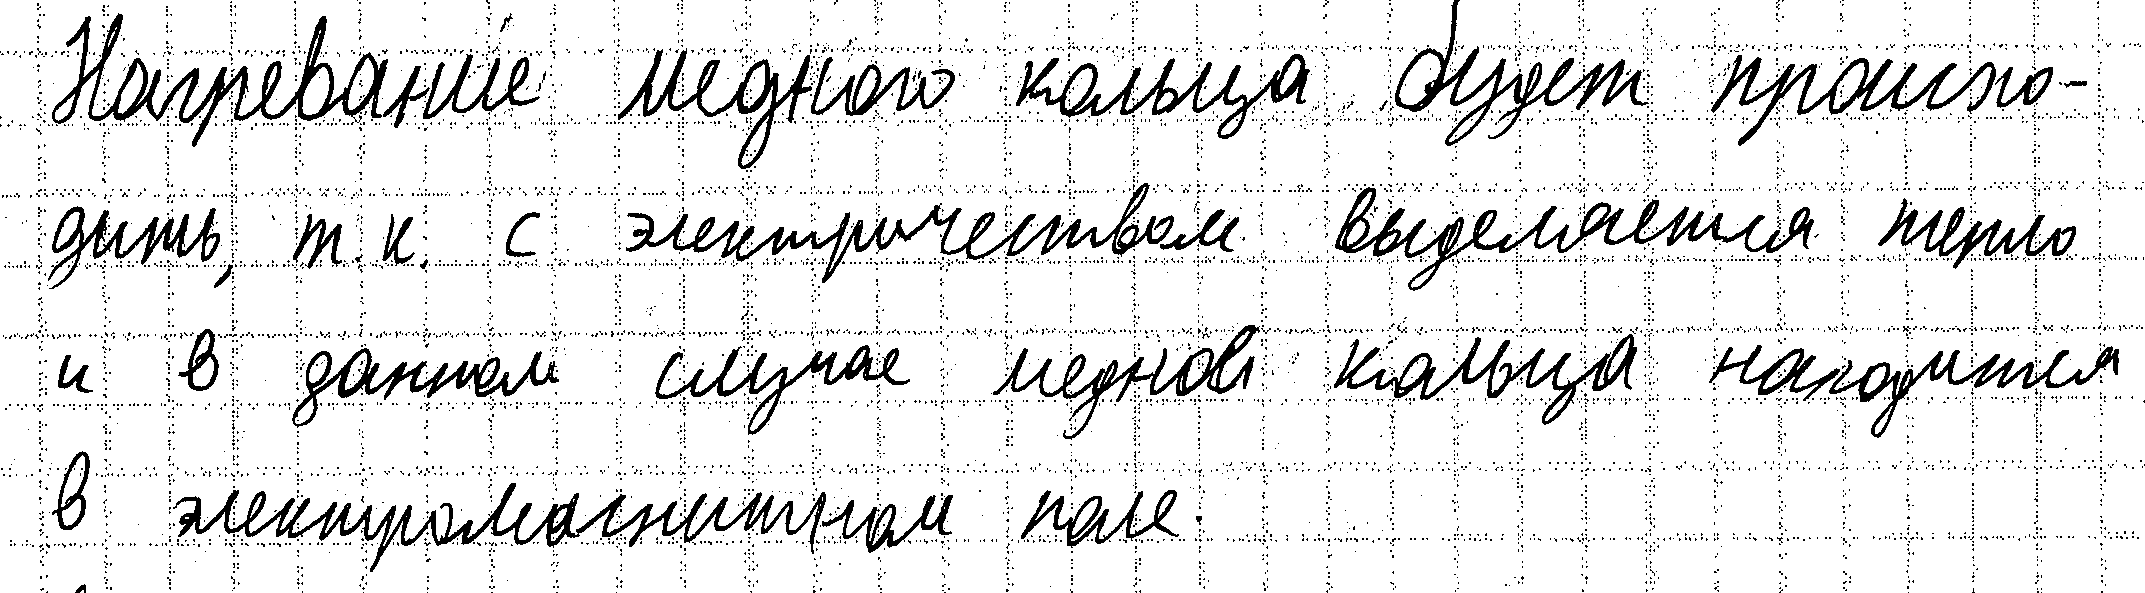 Нагревание медного кольца будет происхо-
дить, т.к. с электричеством выделяется тепло
и в данном случае медной кольца находится
в электромагнитном поле.